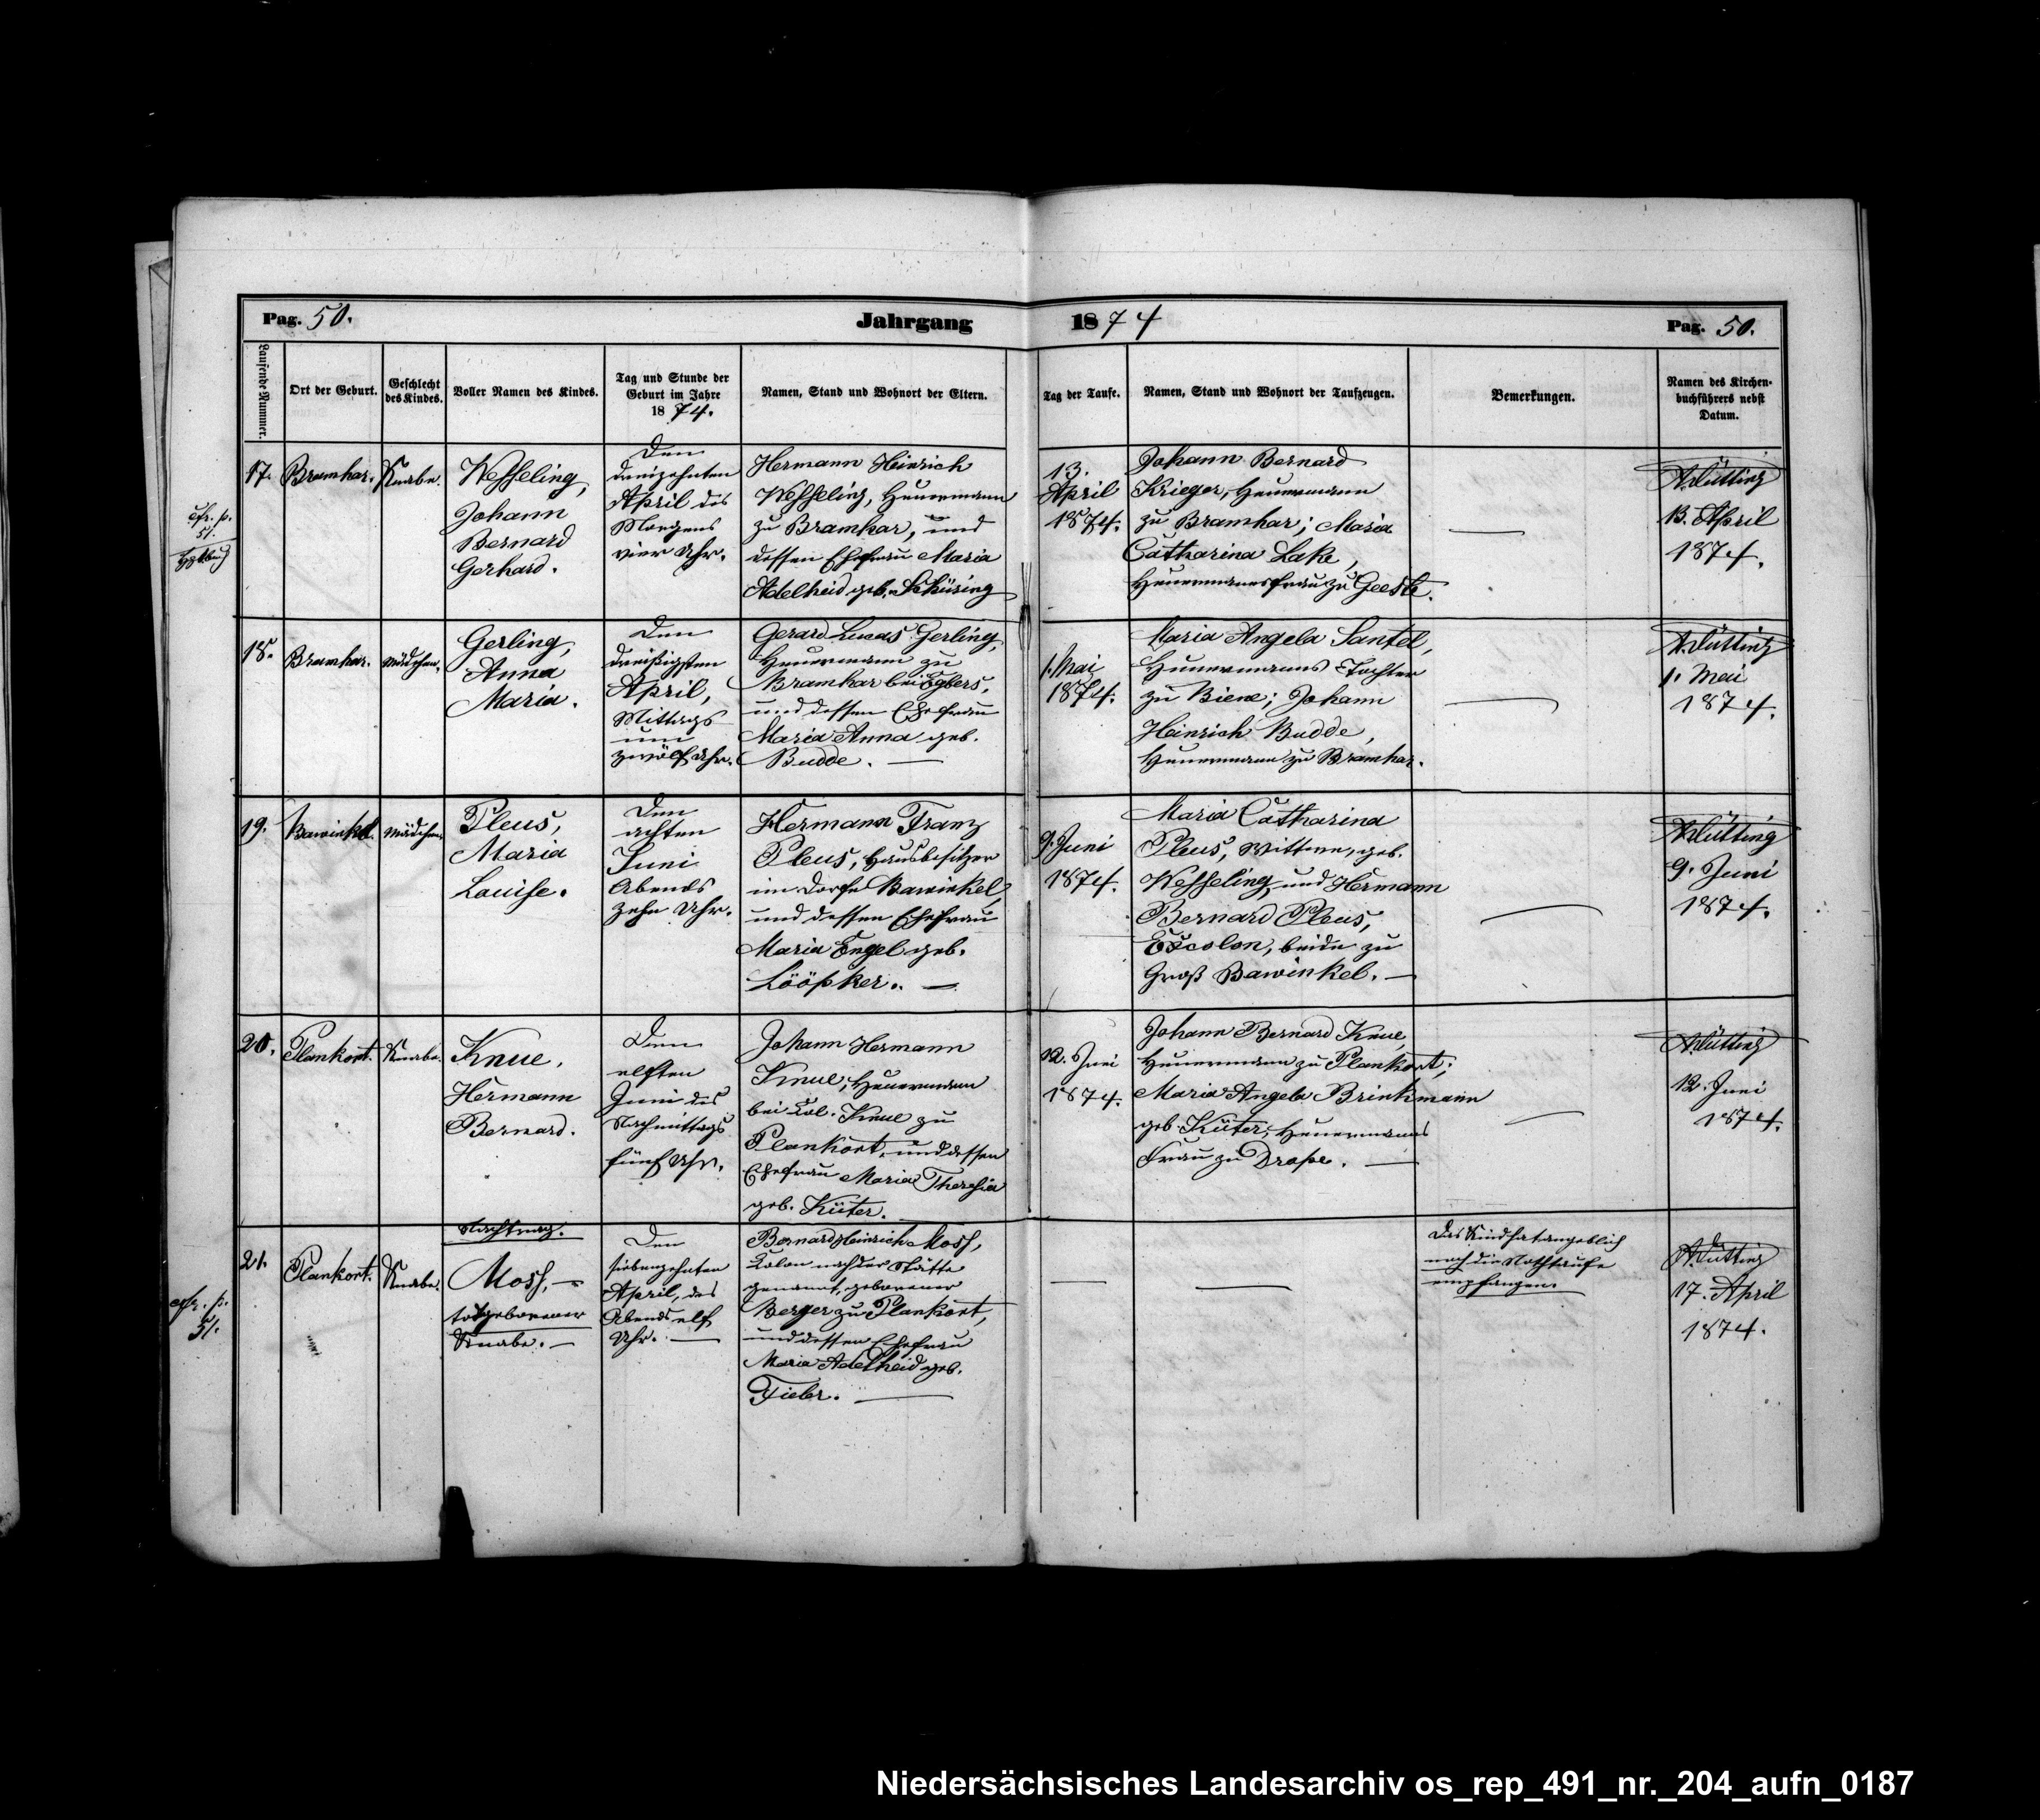 Pag. 50.
Jahrgang
1874
Pag. 50.
Laufende Nummer.
Ort der Geburt.
Geschlecht
des Kindes.
Voller Namen des Kindes.
Tag und Stunde der
Geburt im Jahre
1874.
Namen, Stand und Wohnort der Eltern.
Tag der Taufe.
Namen, Stand und Wohnort der Taufzeugen.
Bemerkungen.
Namen des Kirchen-
buchführers nebst
Datum.
cfr. p.
51.
17.
Bramhar.
Knabe.
Wesseling,
Johann
Bernard
Gerhard.
Den
dreizehnten
April des
Morgens
vier Uhr.
Hermann Heinrich
Wesseling, Heuermann
zu Bramhar, und
dessen Ehefrau Maria
Adelheid geb. Schüring
13.
April
1874.
Johann Bernard
Krieger, Heuermann
zu Bramhar; Maria
Catharina Lake,
Heuermannsfrau zu Geeste.
A. Dütting
13. April
1874.
18.
Bramhar.
Mädchen.
Gerling,
Anna
Maria.
Den
dreißigsten
April,
Mittags
um
zwölf Uhr.
Gerard Lucas Gerling,
Heuermann zu
Bramhar bei Egbers,
und dessen Ehefrau
Maria Anna geb.
Budde.
1. Mai
1874.
Maria Angela Santel,
Heuermanns Tochter
zu Biene; Johann
Heinrich Budde,
Heuermann zu Bramhar.
A. Dütting
1. Mai
1874.
19.
Bawinkel.
Mädchen.
Pleus,
Maria
Louise.
Den
achten
Juni
Abends
zehn Uhr.
Hermann Franz
Pleus, Hausbesitzer
im Dorfe Bawinkel,
und dessen Ehefrau
Maria Engel geb.
Lööpker.
9. Juni
1874.
Maria Catharina
Pleus, Wittwe, geb.
Wesseling und Hermann
Bernard Pleus,
Excolon, beide zu
Groß Bawinkel.
A. Dütting
9. Juni
1874.
20.
Plankort.
Knabe.
Knue,
Hermann
Bernard.
Den
elften
Juni des
Nachmittags
fünf Uhr.
Johann Hermann
Knue, Heuermann
bei Col. Knue zu
Plankort, und dessen
Ehefrau Maria Theresia
geb. Küter.
12. Juni
1874.
Johann Bernard Knue,
Heuermann zu Plankort;
Maria Angela Brinkmann
geb. Küter, Heuermanns
Frau zu Drope.
A. Dütting
12. Juni
1874.
cfr. p.
51.
21.
Plankort.
Knabe.
Nachtrag.
Moss,
todtgeborener
Knabe.
Den
siebenzehnten
April, des
Abends elf
Uhr.
Bernard Heinrich Moss,
Colon nach der Stätte
genannt, geborener
Berger zu Plankort,
und dessen Ehefrau
Maria Adelheid geb.
Das Kind hat angeblich
noch die Nothtaufe
empfangen.
A. Dütting
17. April
1874.
Niedersächsisches Landesarchiv os_rep_491_nr._204_aufn_0187